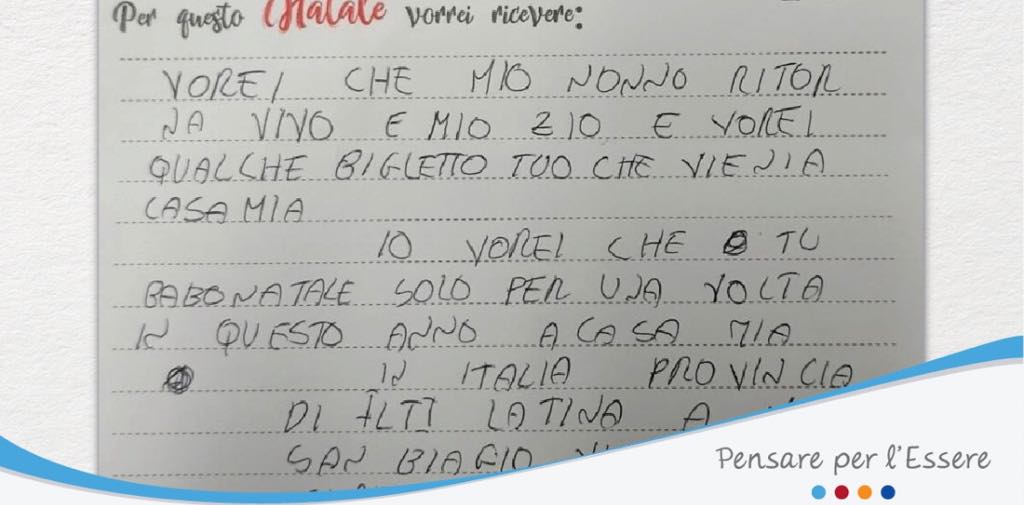 Per questo Natale vorrei ricevere:
VOREI CHE MIO NONNO RITOR
NA VIVO E MIO ZIO E VOREI
QUALCHE BIGLETTO TUO CHE VIENI A
CASA MIA
IO VOREI CHE TU
BABONATALE SOLO PER UNA VOLTA
IN QUESTO ANNO A CASA MIA
IN ITALIA PROVINCIA
DI LATINA A
SAN BIAGIO
Pensare per l'Essere